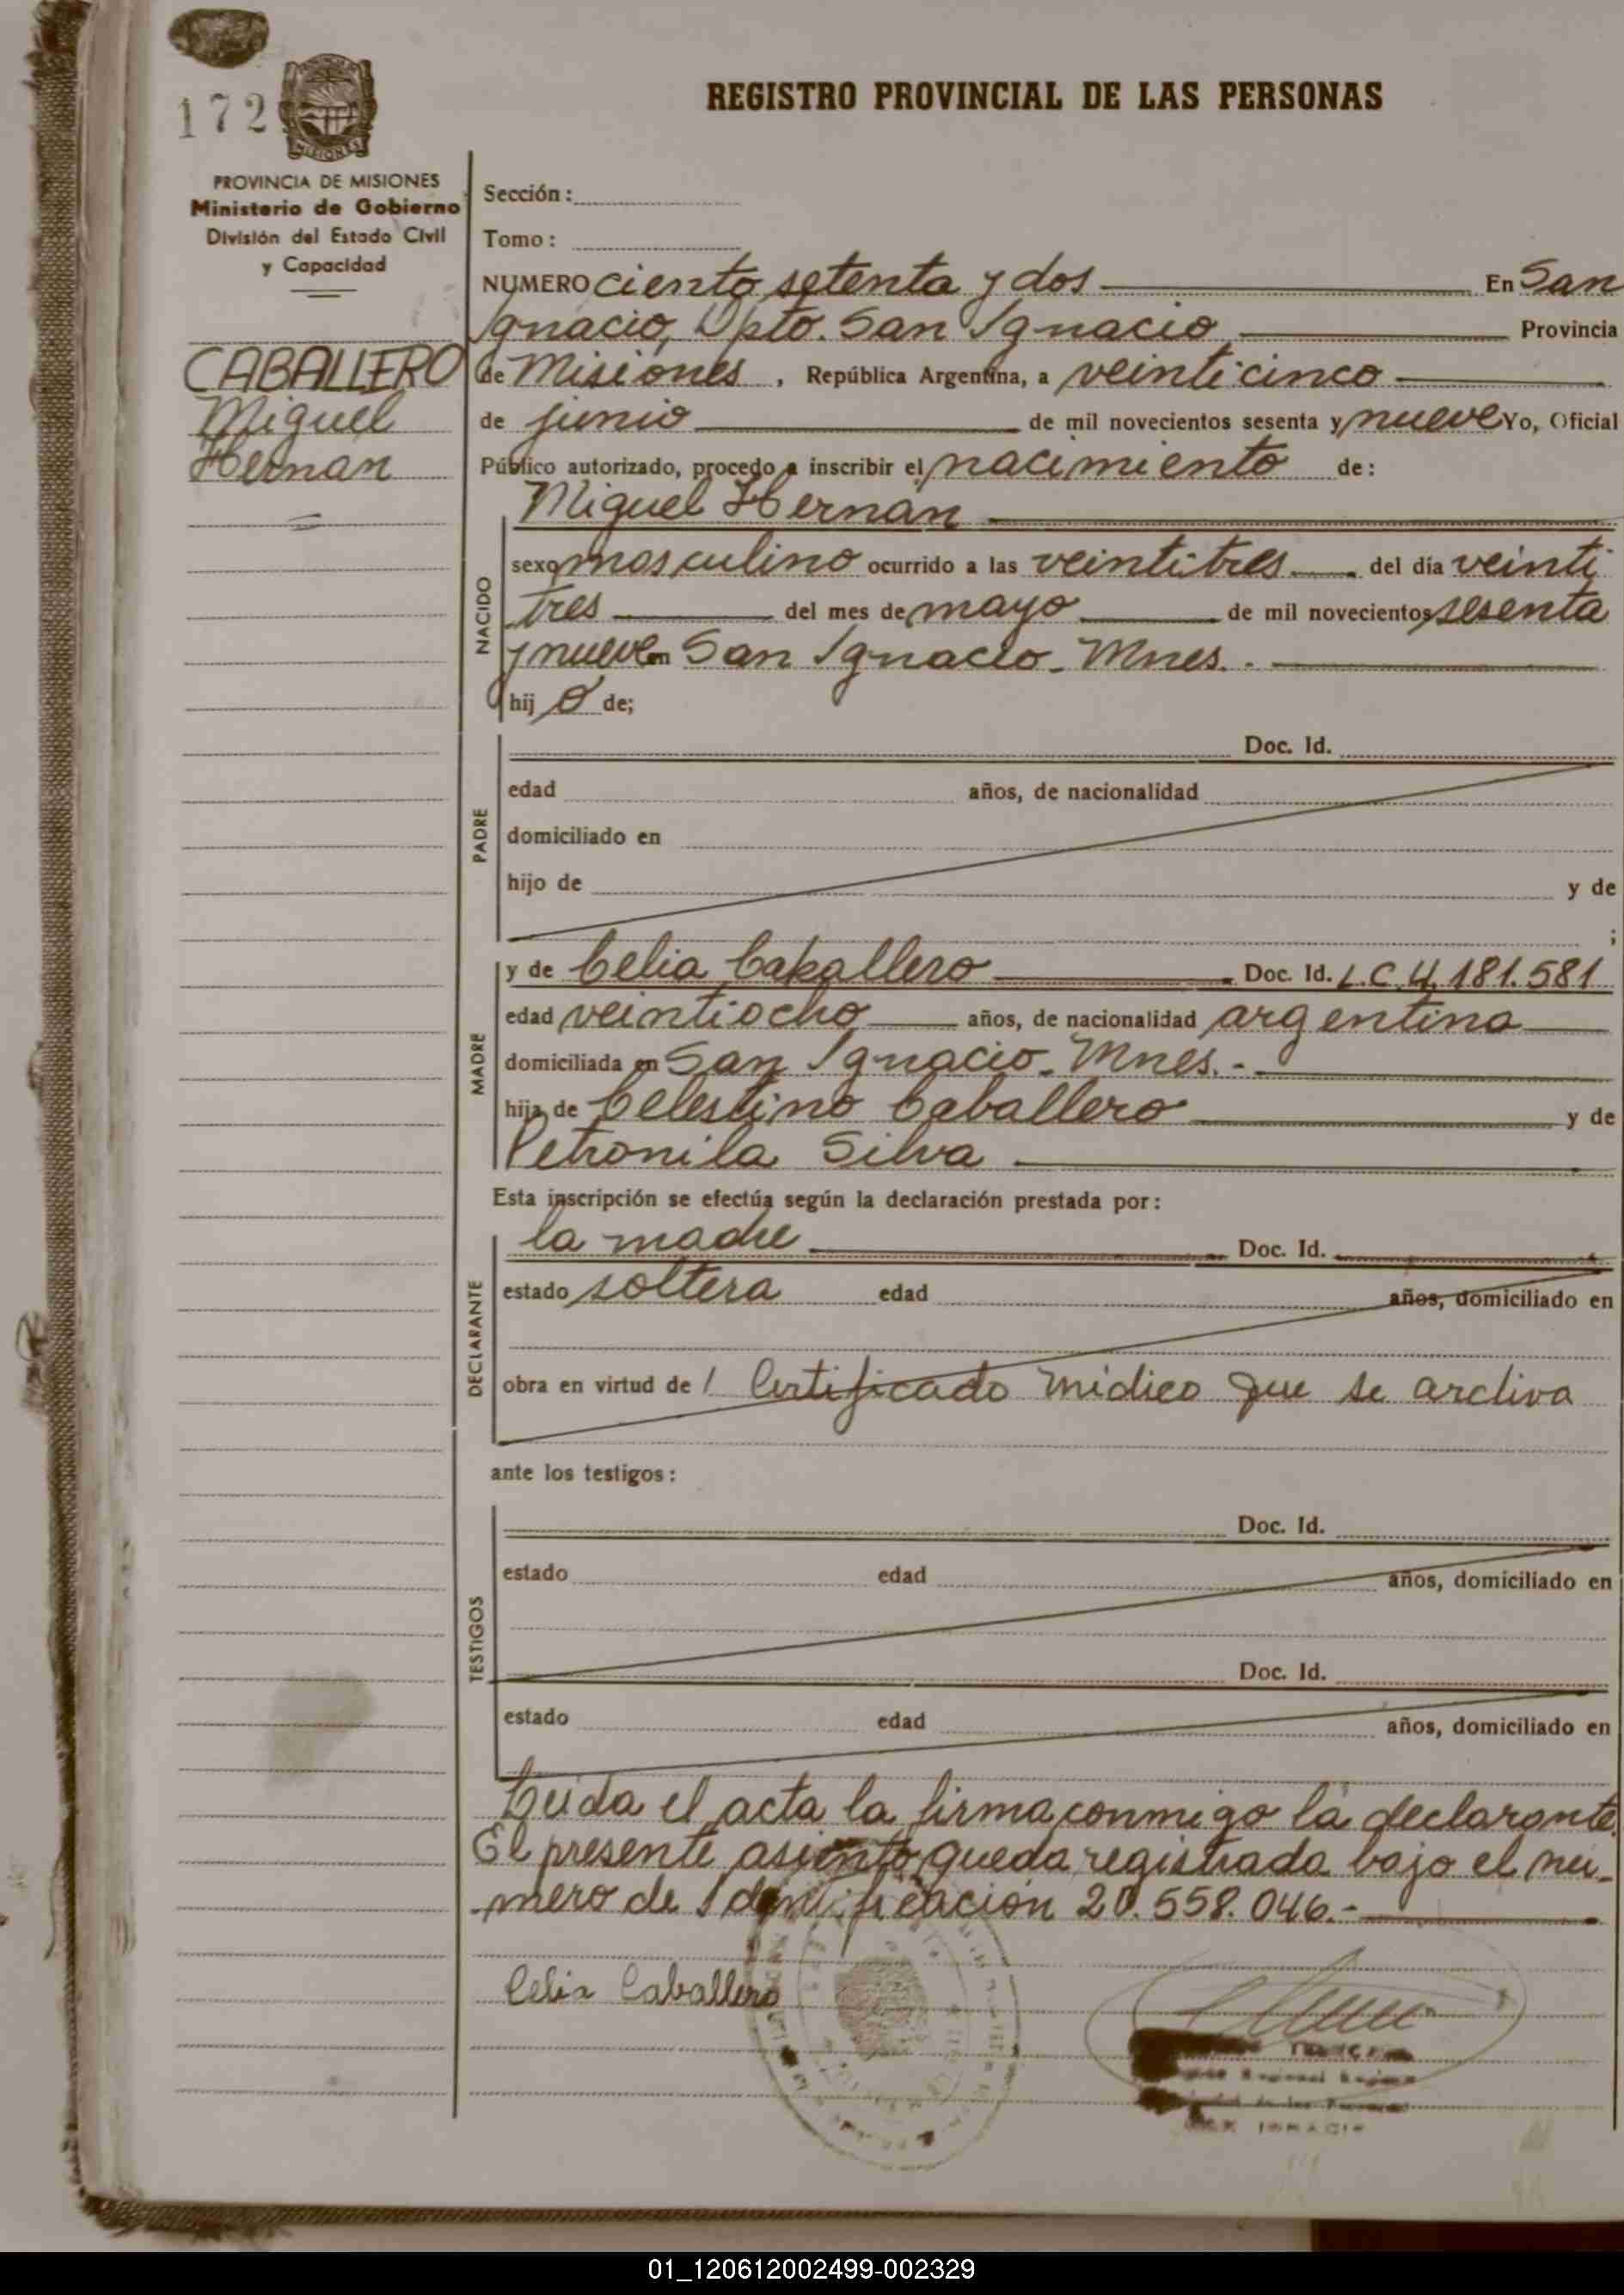 172
MISIONES
PROVINCIA DE MISIONES
Ministerio de Gobierno
División del Estado Civil
y Capacidad
CABALLERO
Miguel
Hernan
REGISTRO PROVINCIAL DE LAS PERSONAS
Sección:
Tomo:
NUMERO ciento setenta y dos En San
Ignacio, Dpto. San Ignacio, Provincia
de Misiones, República Argentina, a veinticinco
de junio de mil novecientos sesenta y nueve Yo, Oficial
Público autorizado, procedo a inscribir el nacimiento de:
Miguel Hernan
NACIDO
sexo masculino ocurrido a las veintitres del día veinti
tres del mes de mayo de mil novecientos sesenta
y nueve en San Ignacio. Mnes.
hij o de;
PADRE
Doc. Id.
edad años, de nacionalidad
domiciliado en
hijo de y de
;
MADRE
y de Celia Caballero Doc. Id. L.C. 4.181.581
edad veintiocho años, de nacionalidad argentina
domiciliada en San Ignacio. Mnes.-
hija de Celestino Caballero y de
Petronila Silva
Esta inscripción se efectúa según la declaración prestada por:
DECLARANTE
la madre Doc. Id.
estado soltera edad años, domiciliado en
obra en virtud de / Certificado médico que se archiva
ante los testigos:
TESTIGOS
Doc. Id.
estado edad años, domiciliado en
Doc. Id.
estado edad años, domiciliado en
Leida el acta la firma conmigo la declarante.
El presente asiento queda registrada bajo el nú-
mero de Identificación 20.558.046.-
Celia Caballero
01_120612002499-002329